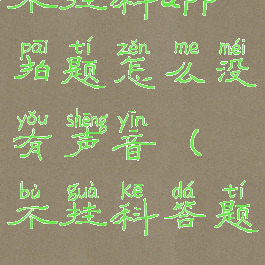 不挂科app
pāi tí zěn me méi
拍题怎么没
yǒu shēng yīn
有声音(
bù guà kē dá tí
不挂科答题